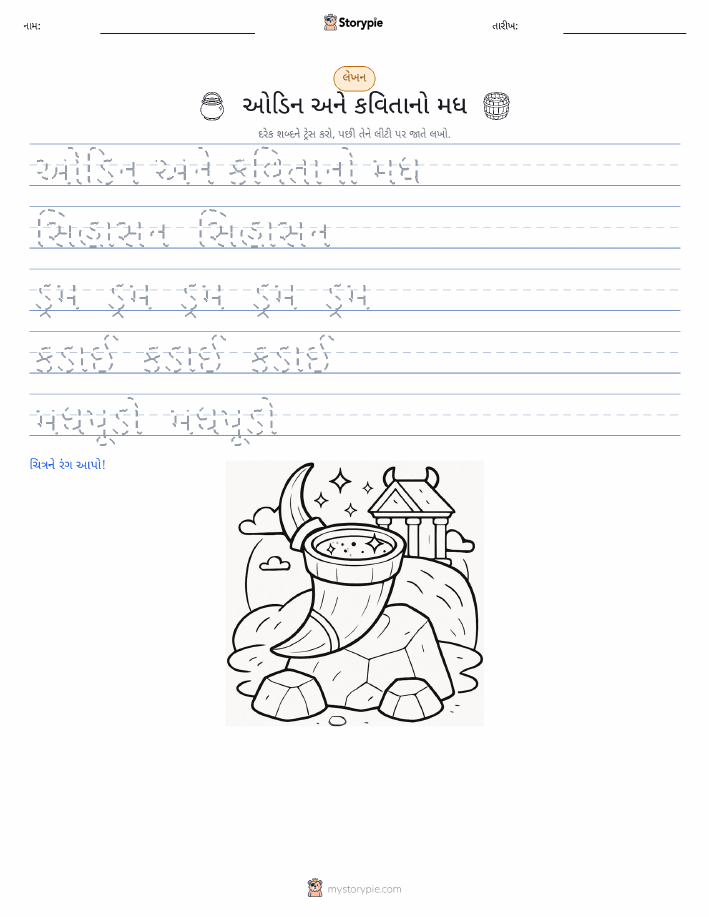 નામ:
Storypie
તારીખ:
લેખન
ઓડિન અને કવિતાનો મધ
દરેક શબ્દને ટ્રેસ કરો, પછી તેને લીટી પર જાતે લખો.
ઓડિન અને કવિતાનો મધ
સિંહાસન સિંહાસન
ડ્રમ ડ્રમ ડ્રમ ડ્રમ ડ્રમ
કડાઈ કડાઈ કડાઈ
મધપૂડો મધપૂડો
ચિત્રને રંગ આપો!
mystorypie.com